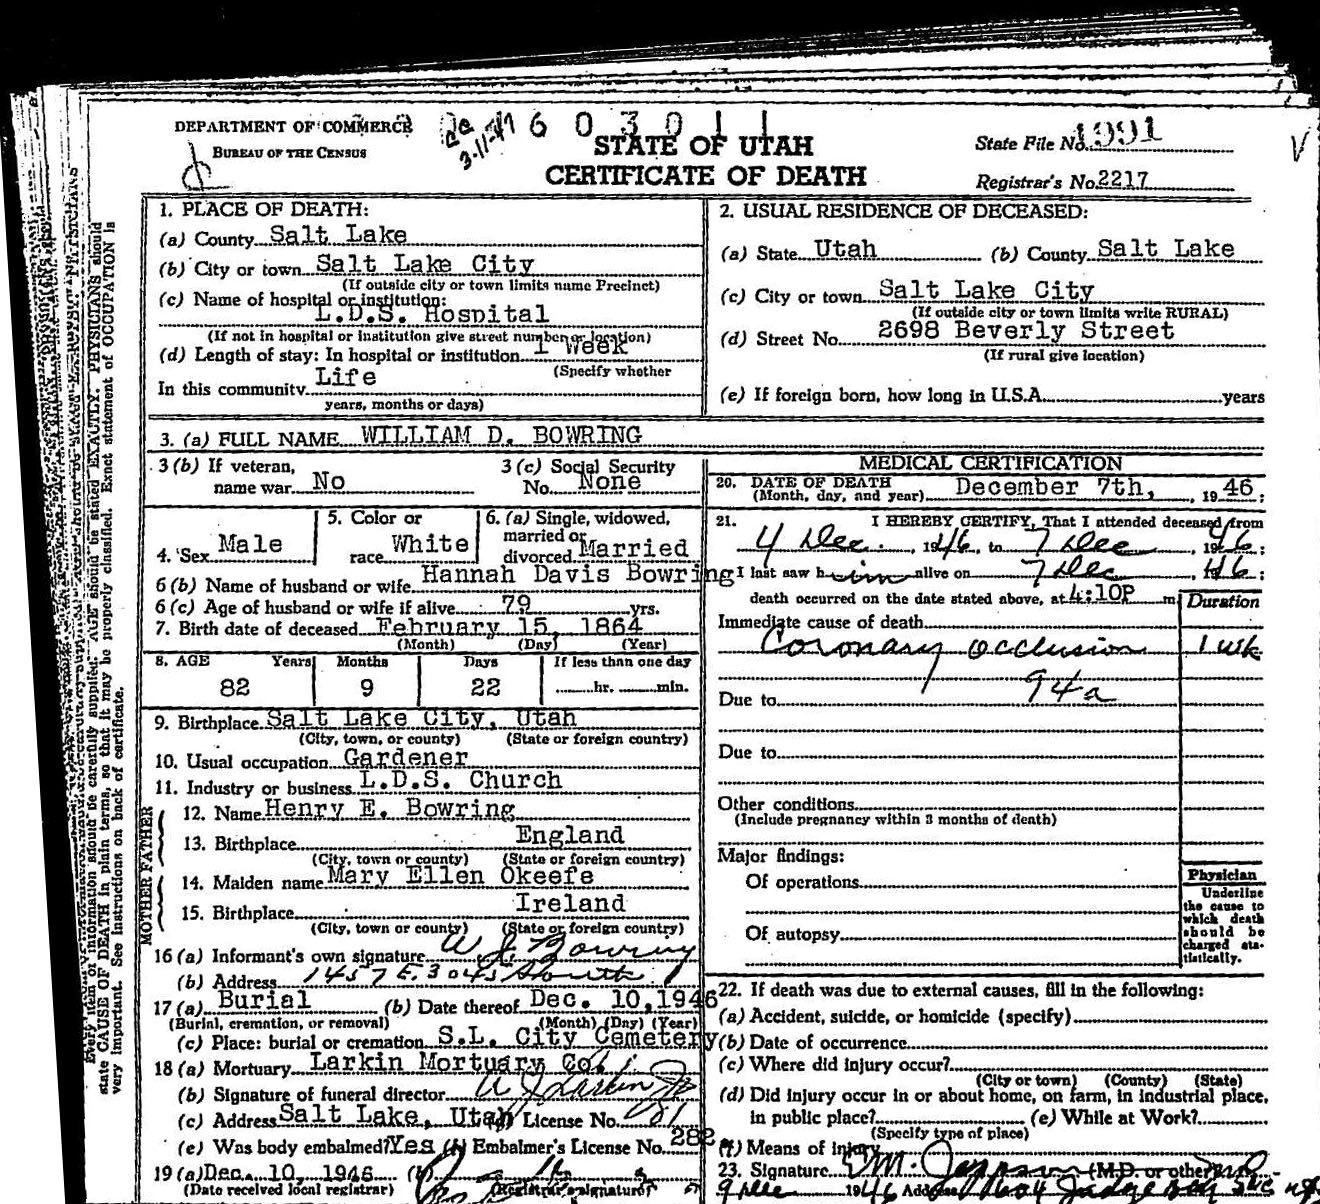 DEPARTMENT OF COMMERCE
BUREAU OF THE CENSUS
3-11-47
6 0 3 0 1 1
STATE OF UTAH
CERTIFICATE OF DEATH
State File No. 4991
Registrar's No. 2217
1. PLACE OF DEATH:
(a) County Salt Lake
(b) City or town Salt Lake City
(If outside city or town limits name Precinct)
(c) Name of hospital or institution:
L.D.S. Hospital
(If not in hospital or institution give street number or location)
(d) Length of stay: In hospital or institution 1 Week
(Specify whether
In this community Life
years, months or days)
2. USUAL RESIDENCE OF DECEASED:
(a) State Utah (b) County Salt Lake
(c) City or town Salt Lake City
(If outside city or town limits write RURAL)
(d) Street No. 2698 Beverly Street
(If rural give location)
(e) If foreign born, how long in U.S.A. years
3. (a) FULL NAME WILLIAM D. BOWRING
3 (b) If veteran, name war No
3 (c) Social Security No. None
4. Sex Male
5. Color or race White
6. (a) Single, widowed, married or divorced Married
6 (b) Name of husband or wife Hannah Davis Bowring
6 (c) Age of husband or wife if alive 79 yrs.
7. Birth date of deceased February 15, 1864
(Month) (Day) (Year)
8. AGE Years Months Days If less than one day
82 9 22 hr. min.
9. Birthplace Salt Lake City, Utah
(City, town, or county) (State or foreign country)
10. Usual occupation Gardener
11. Industry or business L.D.S. Church
FATHER
12. Name Henry E. Bowring
13. Birthplace England
(City, town or county) (State or foreign country)
MOTHER
14. Maiden name Mary Ellen Okeefe
15. Birthplace Ireland
(City, town or county) (State or foreign country)
16 (a) Informant's own signature W. J. Bowring
(b) Address 1457 E. 3045 South
17 (a) Burial (b) Date thereof Dec. 10, 1946
(Burial, cremation, or removal) (Month) (Day) (Year)
(c) Place: burial or cremation S.L. City Cemetery
18 (a) Mortuary Larkin Mortuary Co.
(b) Signature of funeral director W J Larkin Jr
(c) Address Salt Lake, Utah (d) License No. 181
(e) Was body embalmed? Yes (f) Embalmer's License No. 282
19 (a) Dec. 10, 1946 (b)
(Date received local registrar) (Registrar's signature)
MEDICAL CERTIFICATION
20. DATE OF DEATH
(Month, day, and year) December 7th, , 1946;
21. I HEREBY CERTIFY, That I attended deceased from
4 Dec. , 1946, to 7 Dec , 1946;
I last saw him alive on 7 Dec , 1946;
death occurred on the date stated above, at 4:10P m
Duration
Immediate cause of death
Coronary occlusion 1 wk
94a
Due to
Due to
Other conditions
(Include pregnancy within 3 months of death)
Major findings:
Of operations
Of autopsy
Physician
Underline
the cause to
which death
should be
charged sta-
tistically.
22. If death was due to external causes, fill in the following:
(a) Accident, suicide, or homicide (specify)
(b) Date of occurrence
(c) Where did injury occur?
(City or town) (County) (State)
(d) Did injury occur in or about home, on farm, in industrial place,
in public place? (e) While at Work?
(Specify type of place)
(f) Means of injury
23. Signature (M.D. or other)
9 Dec 1946 Address 1604 Judge Bldg SLC
Every item of information should be carefully supplied. AGE should be stated EXACTLY. PHYSICIANS should
state CAUSE OF DEATH in plain terms, so that it may be properly classified. Exact statement of OCCUPATION is
very important. See instructions on back of certificate.